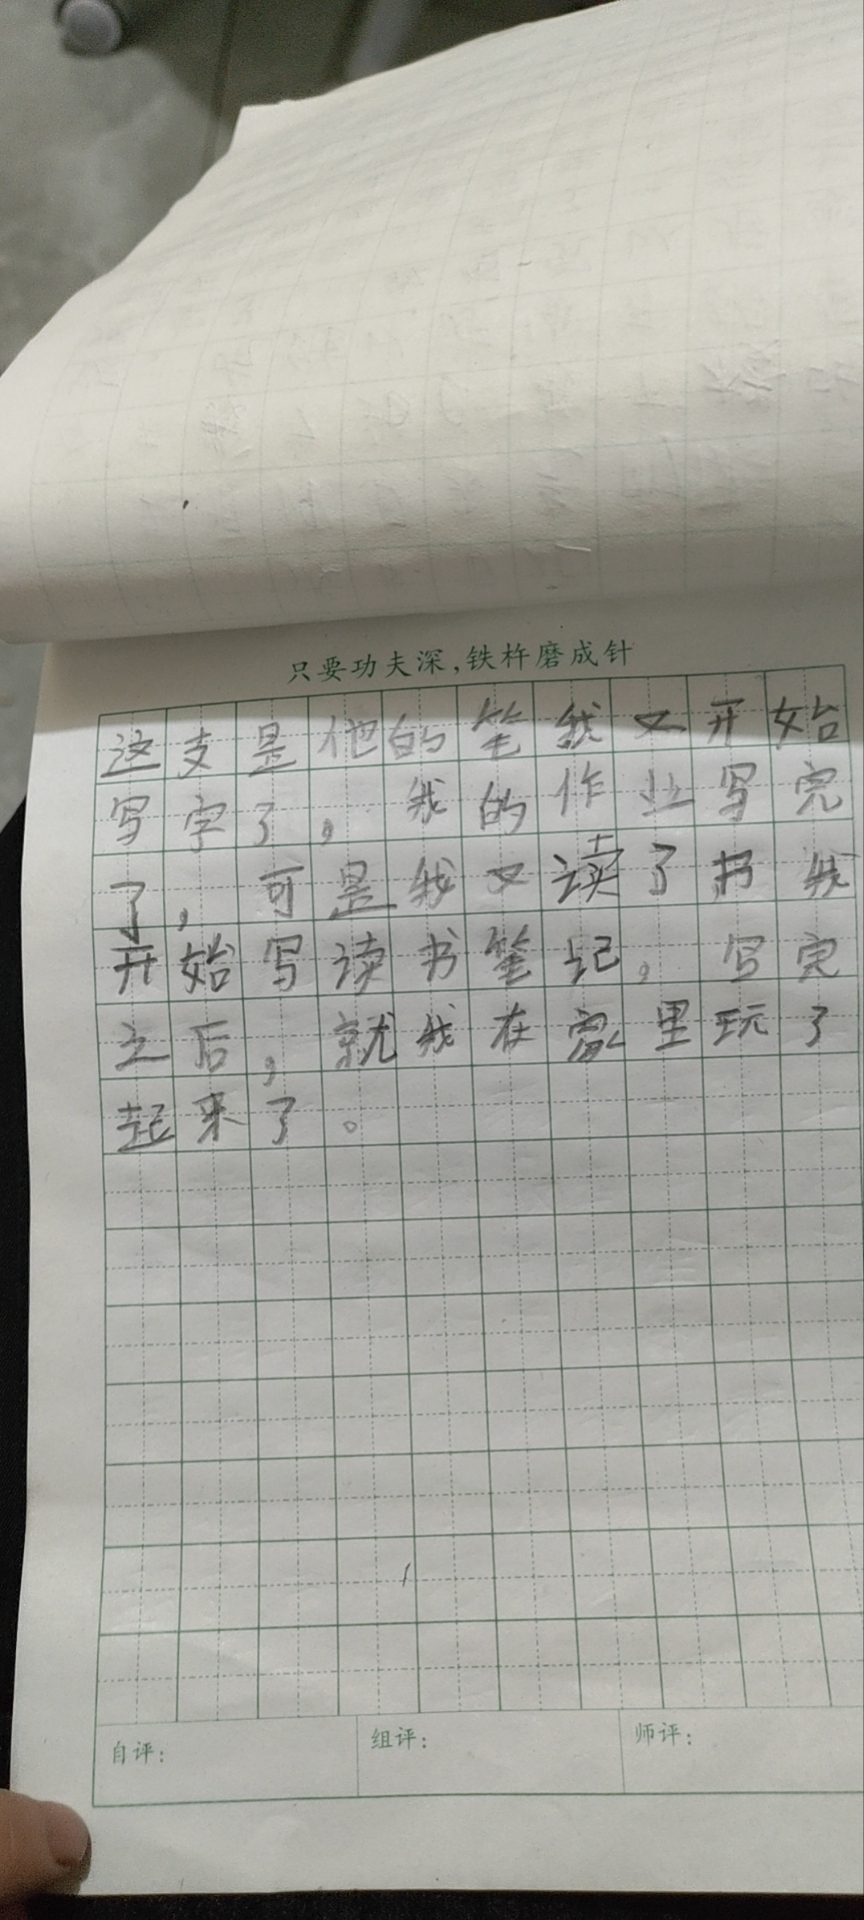 只要功夫深,铁杵磨成针
这支是他的笔我又开始
写字了，我的作业写完
了，可是我又读了书我
开始写读书笔记，写完
之后，就我在家里玩了
起来了。
自评：
组评：
师评：